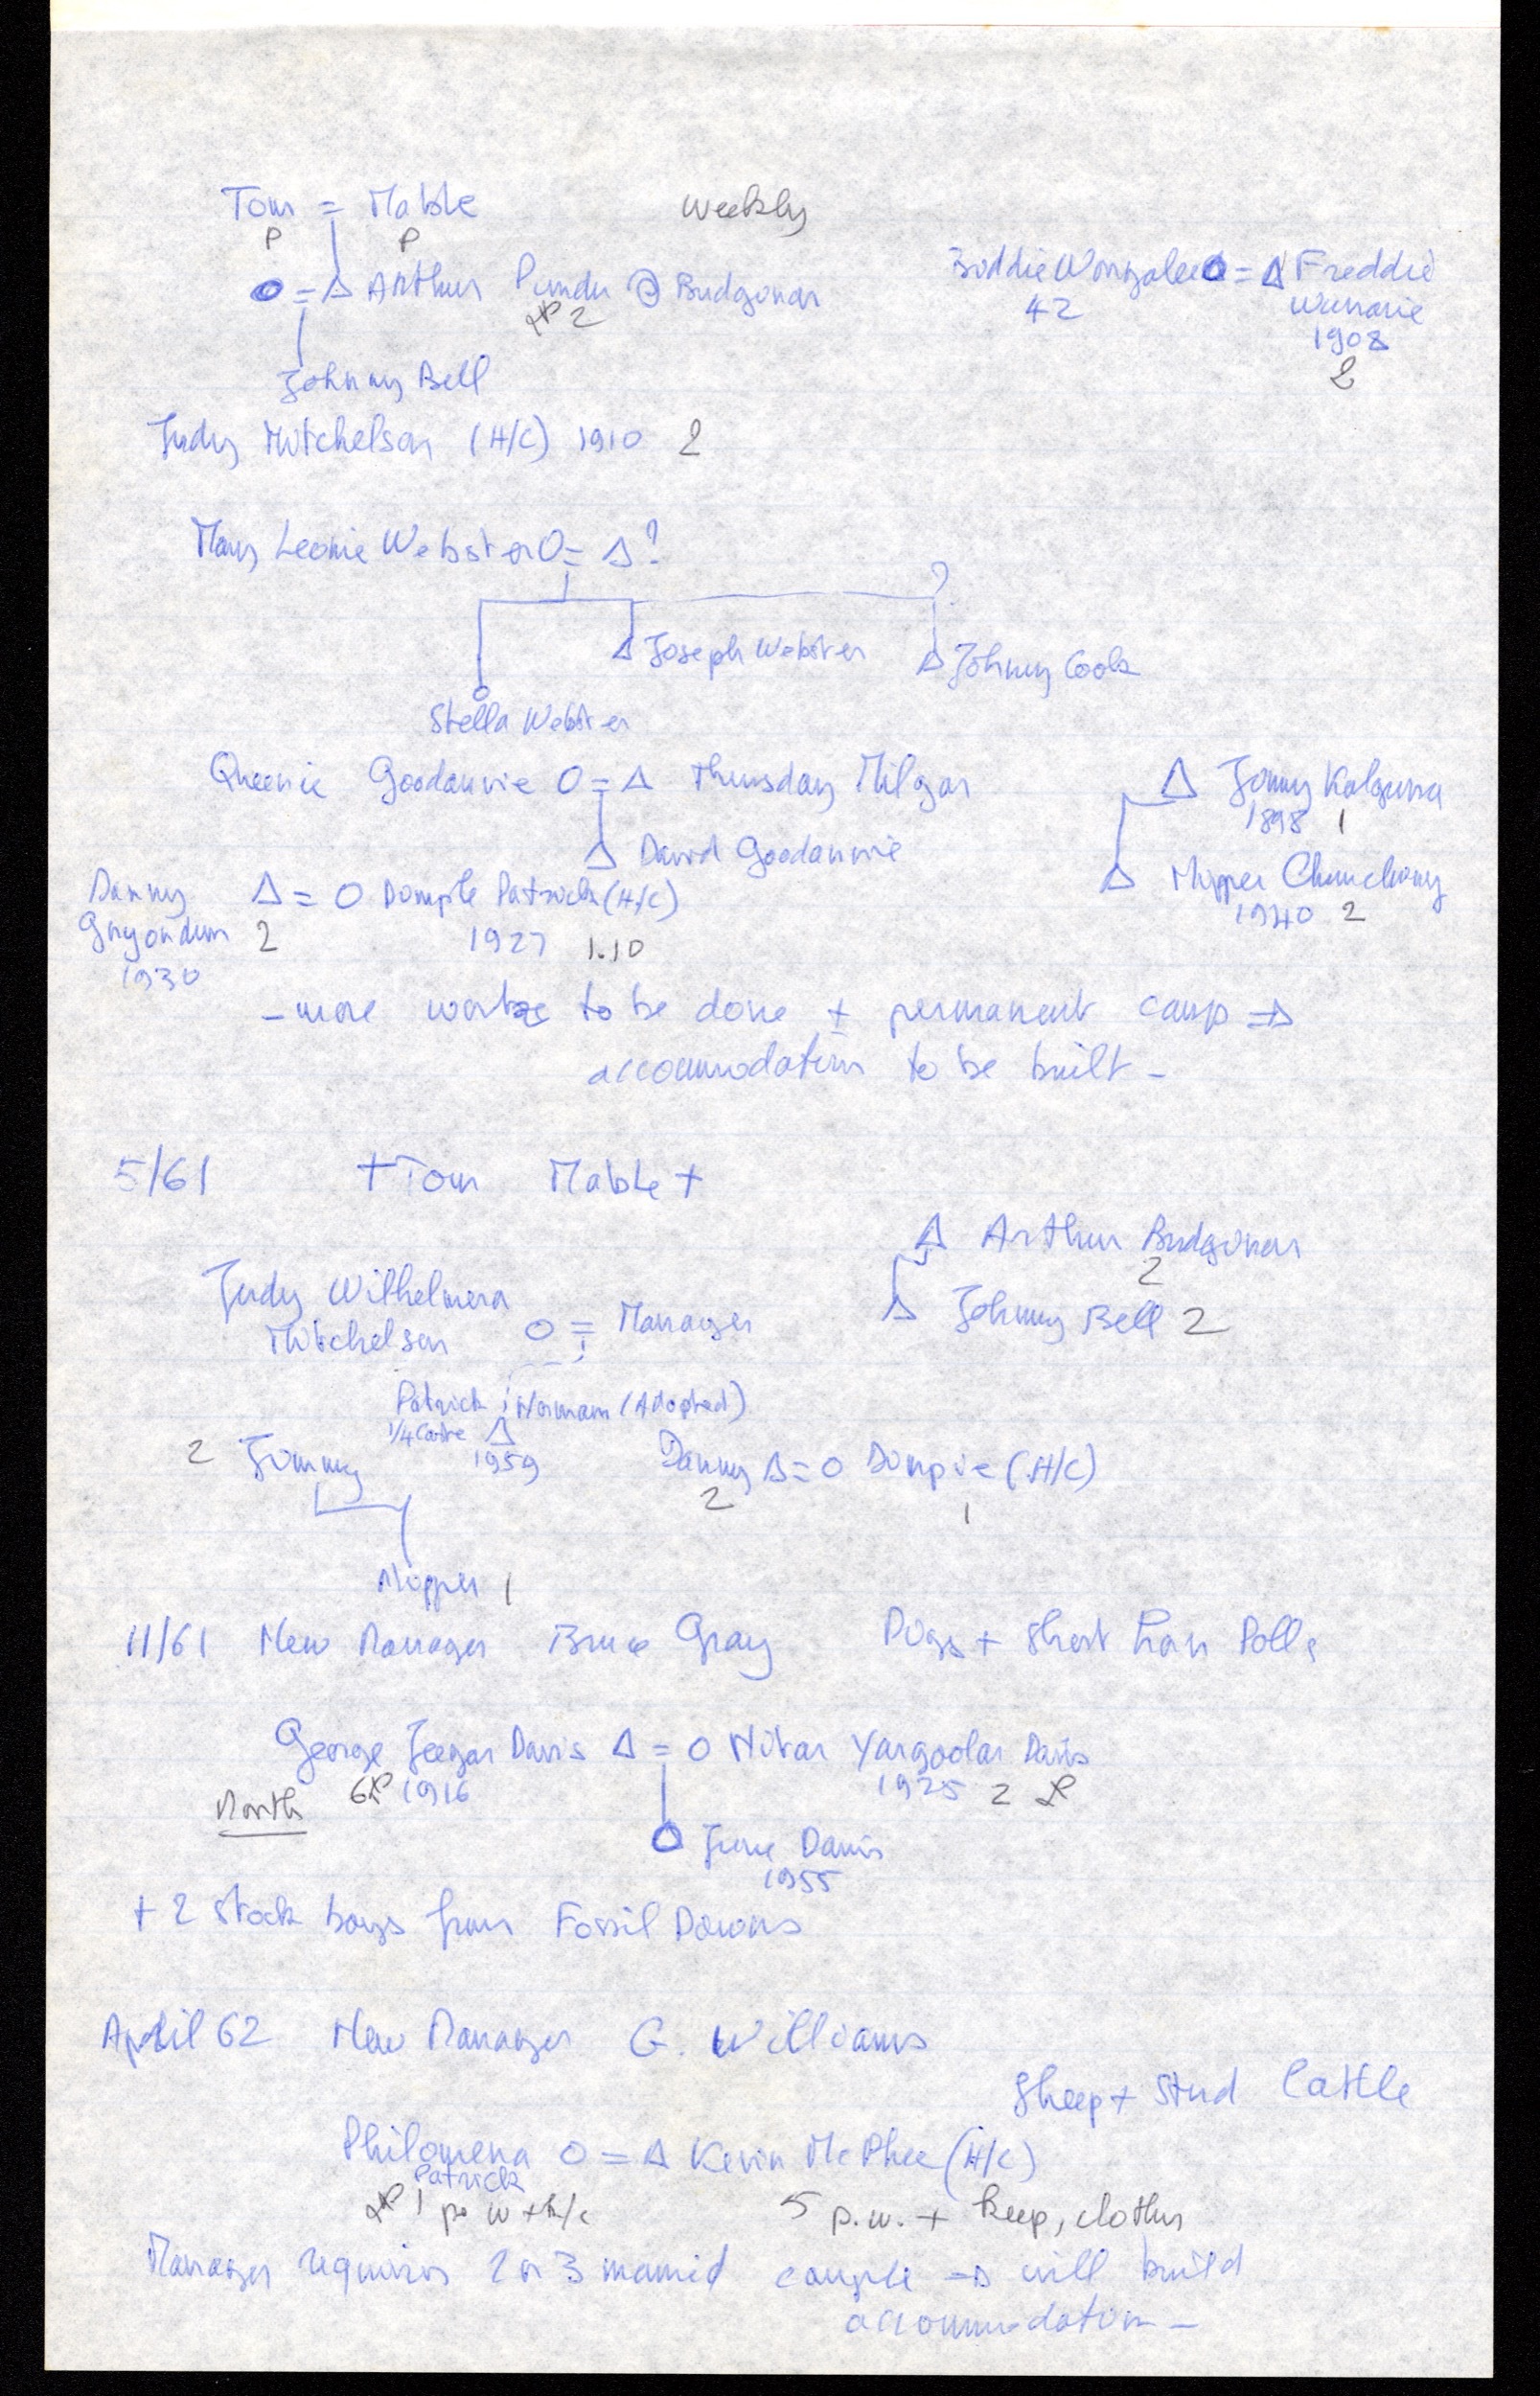 Tom = Mable weekly
P P
O = Δ Arthur Pundu @ Budgonar Biddie Wongalee O = Δ Freddie
2 42 Wunarie
1908
2
Johnny Bell
Judy Mitchelson (H/C) 1910 2
Mary Leonie Webster O = Δ ?
?
Δ Joseph Webster Δ Johnny Cook
Stella Webster
Queenie Goodanvie O = Δ Thursday Milgar Δ Jommy Kalgunna
1898 1
Δ David Goodanvie
Danny Δ = O Dompie Patrick (H/C) Δ Mopper Chunchuny
Gnyondum 2 1927 1.10 1940 2
1930
- more work to be done + permanent camp ⇒
accommodation to be built -
5/61 + Tom Mable +
Δ Arthur Budgonar
2
Judy Wilhelmena Δ Johnny Bell 2
Mitchelson O = Manager
Patrick Norman (Adopted)
1/4 Caste Δ
2 Jommy 1959 Danny Δ = O Dompie (H/C)
2 1
Mopper 1
11/61 New Manager Bruce Gray Pigs + Short horn Polls
George Jeegar Davis Δ = O Nitar Yargoolar Davis
Month 6 1916 1925 2
O June Davis
1955
+ 2 Stock boys from Fossil Downs
April 62 New Manager G. Williams
Sheep + Stud Cattle
Philomena O = Δ Kevin McPhee (H/C)
Patrick
1 p w + k/c 5 p.w. + keep, clothes
Manager requires 2 or 3 married couple ⇒ will build
accommodation -